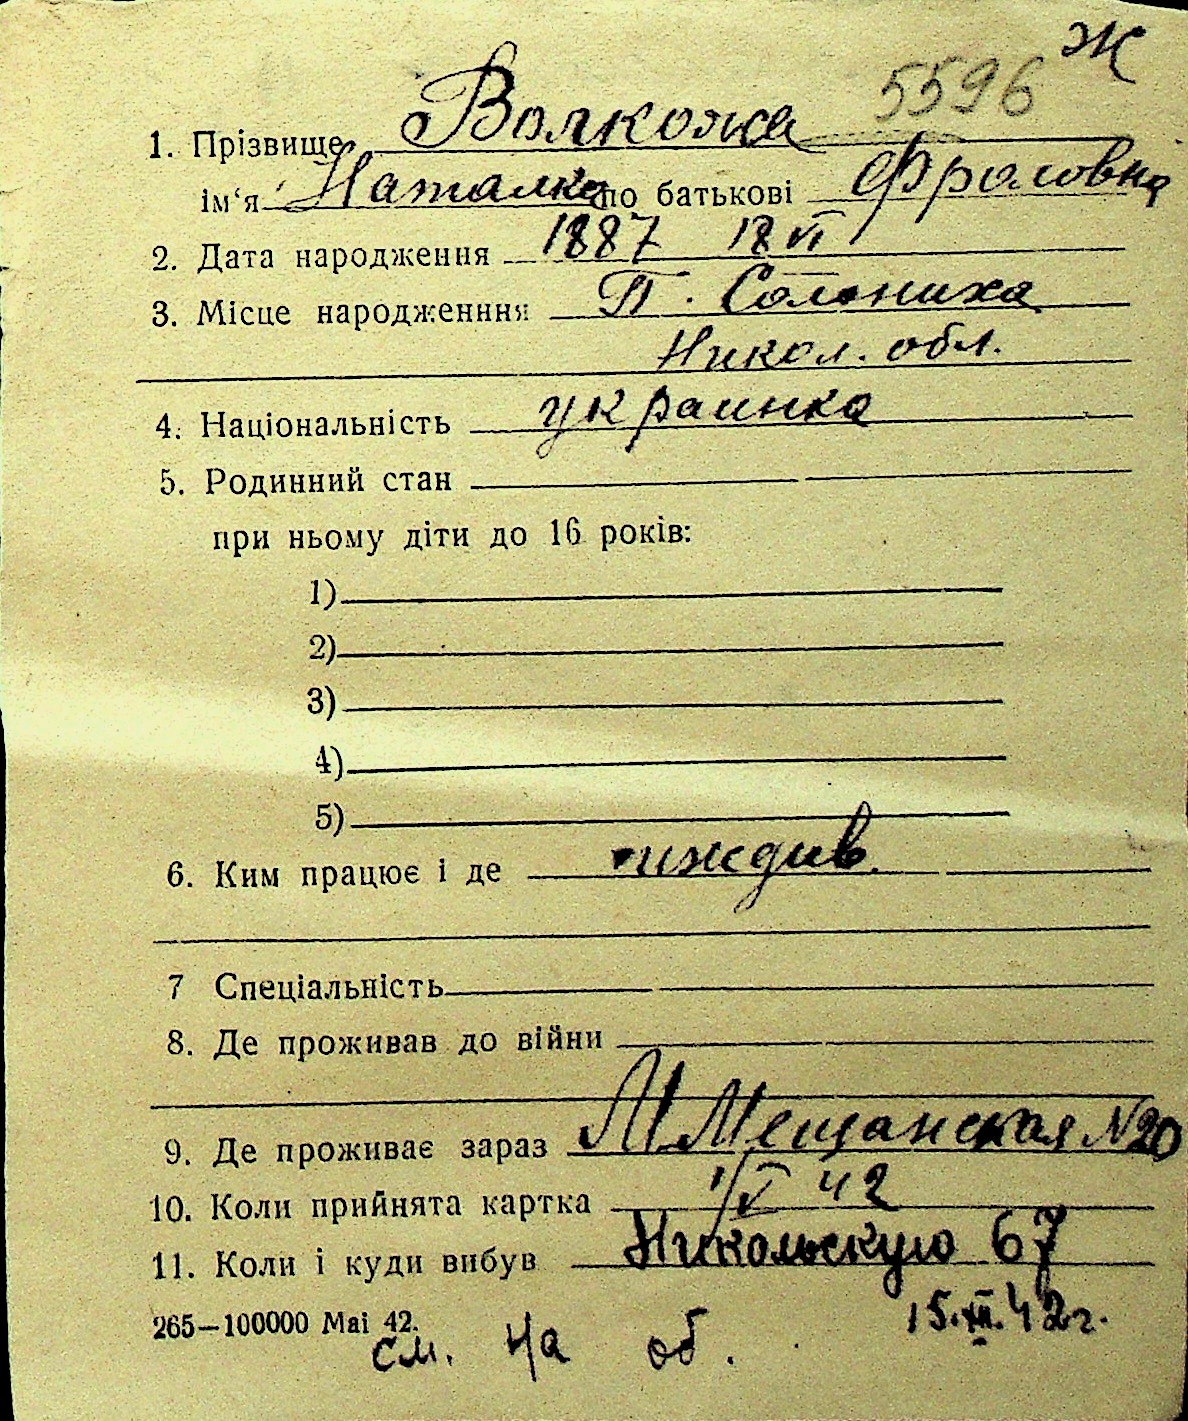 Ж
5596
1. Прізвище Волкожа
ім‘я Наталка по батькові Фроловна
2. Дата народження 1887 18 VI
3. Місце народженння П. Солониха
Никол. обл.
4. Національність украинка
5. Родинний стан
при ньому діти до 16 років:
1)
2)
3)
4)
5)
6. Ким працює і де иждив.
7 Спеціальність
8. Де проживав до війни
9. Де проживає зараз М Мещанская №20
10. Коли прийнята картка 1/V 42
11. Коли і куди вибув Никольскую 67
265—100000 Маі 42. 15.XII.42г.
см. на об.